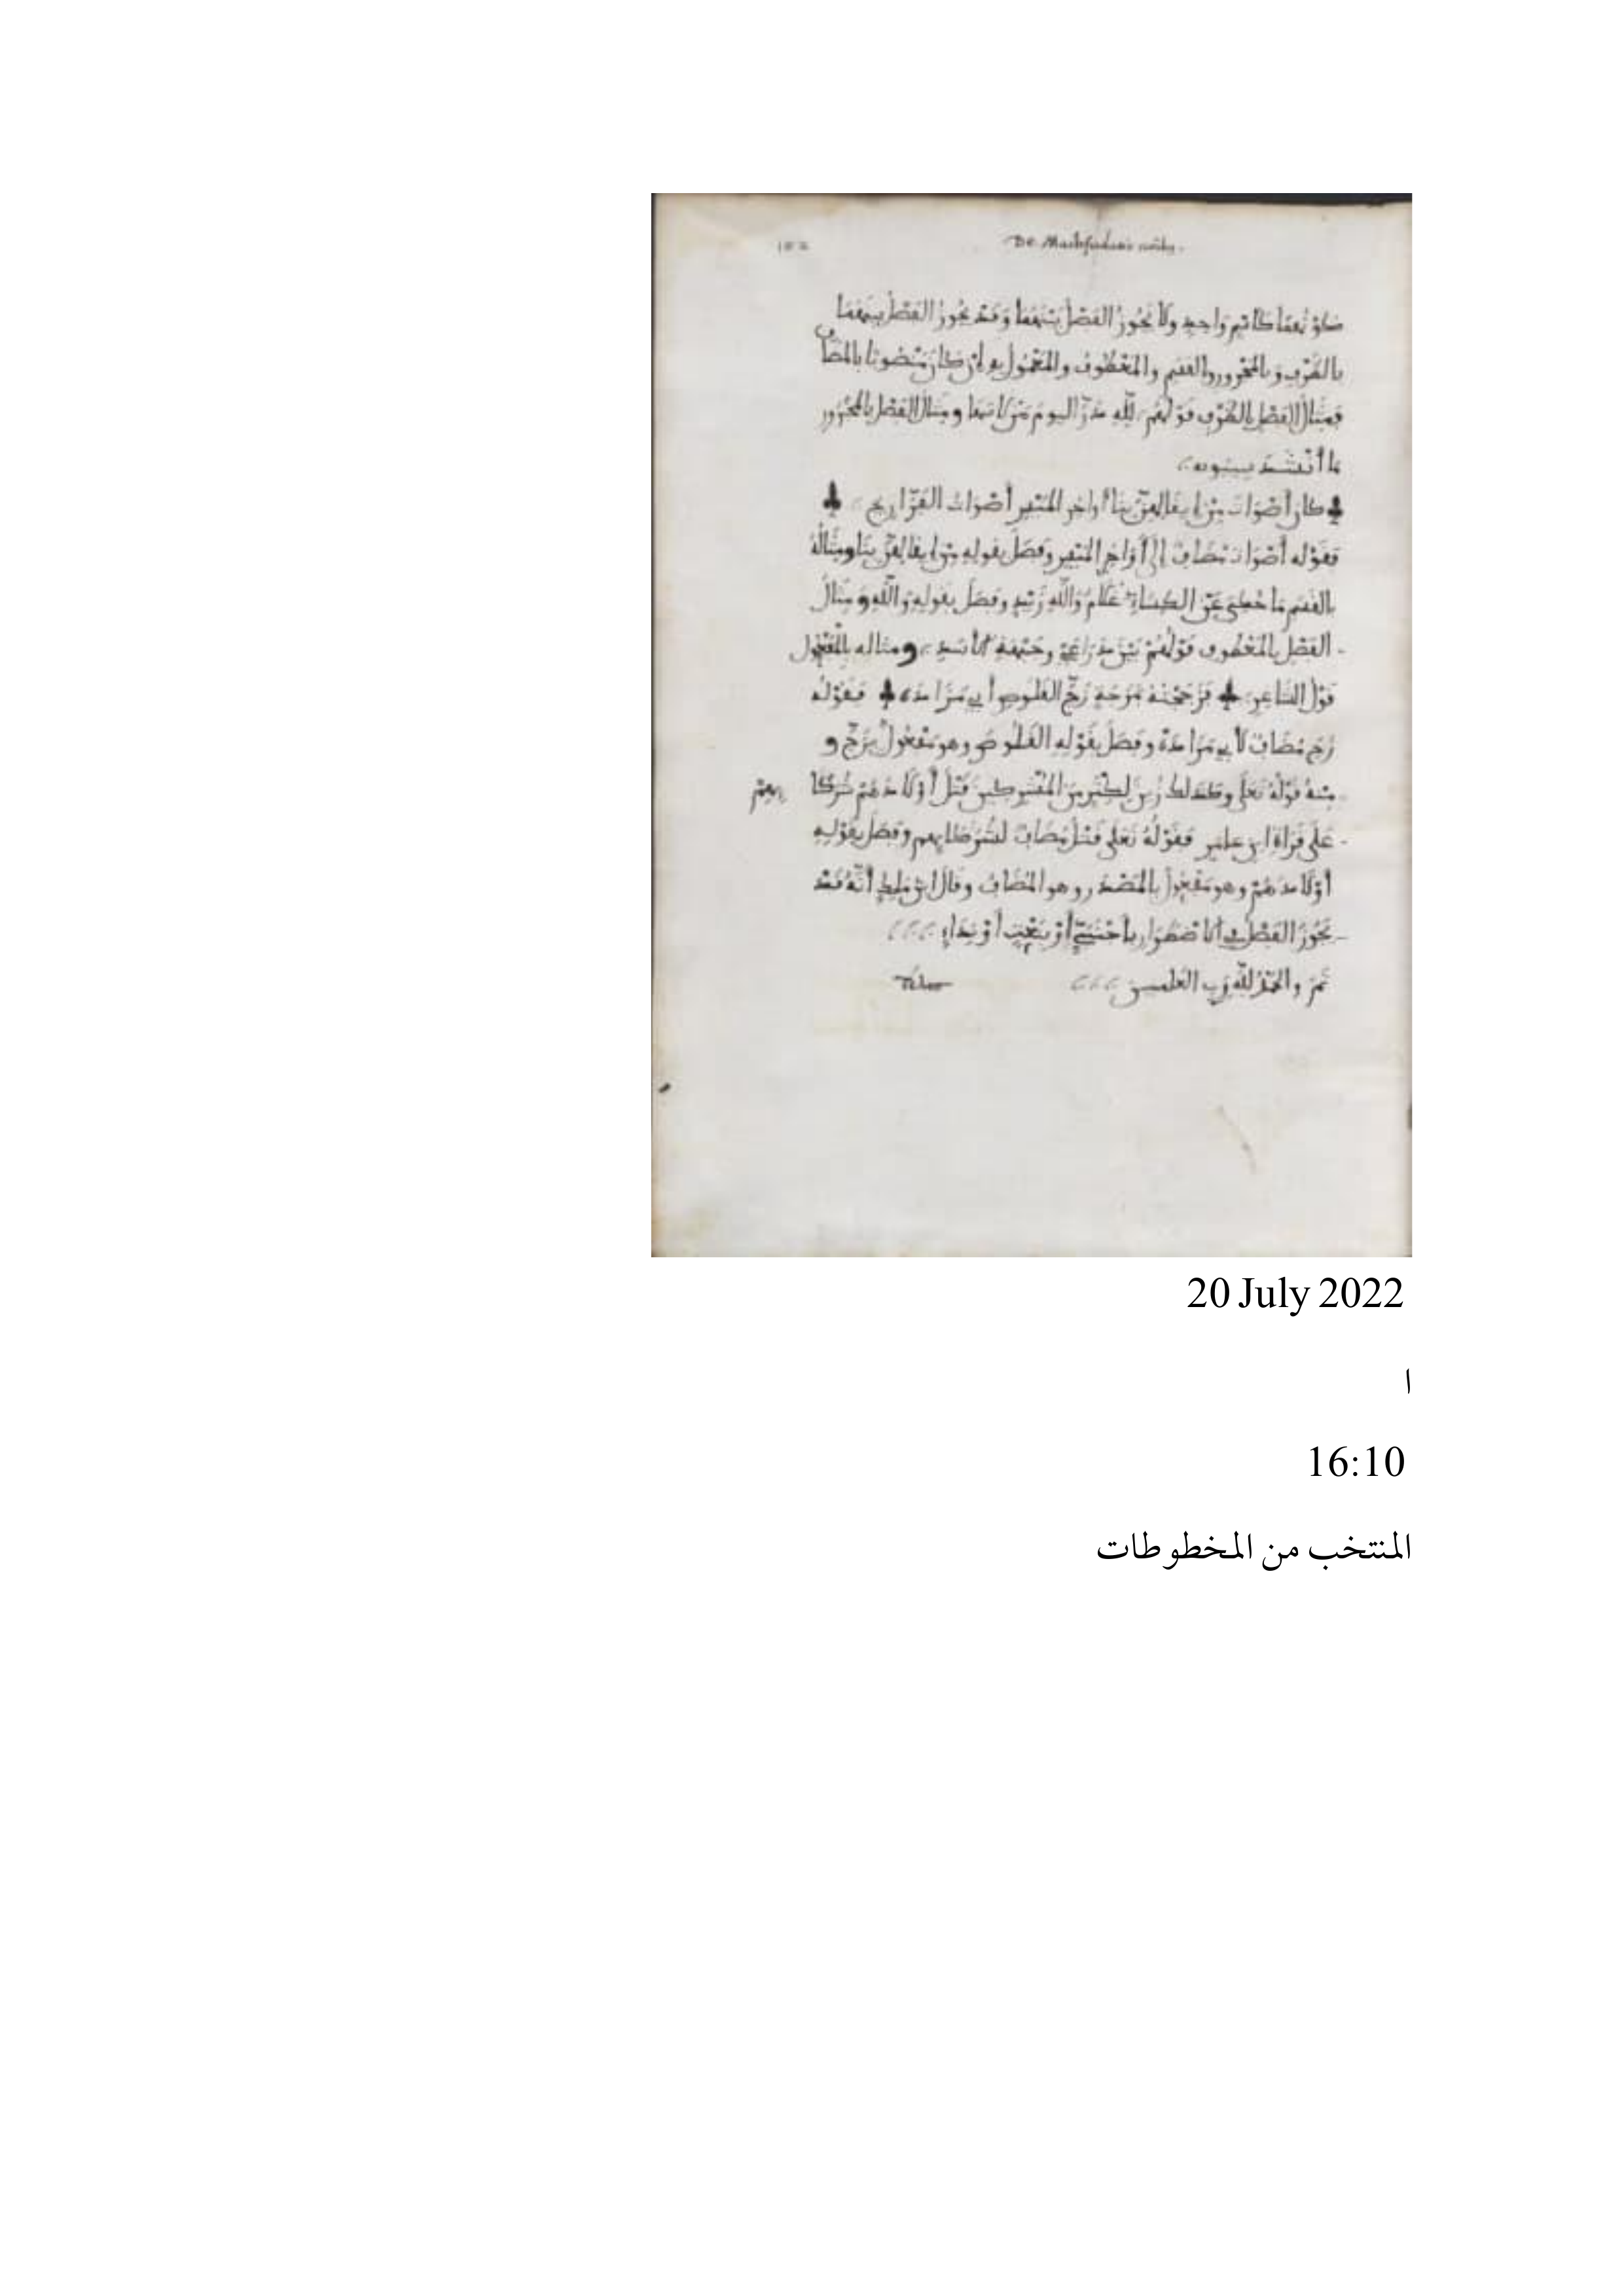 De
كونهما كاسم واحد ولا يجوز الفصل بينهما وقد يجوز الفصل بينهما
بالظرف وبالمجرور والقسم والمعطوف والمعمول به إن كان منصوبا بالمضاف
فمثال الفصل بالظرف قولهم لله در اليوم من لامها ومثال الفصل بالمجرور
ما أنشد سيبويه
كان أصوات من إيغالهن بنا أواخر الميس أصوات الفراريج
فقوله أصوات مضاف إلى أواخر الميس وفصل بقوله من إيغالهن بنا ومثاله
بالقسم ما حكى عن الكساء غلام والله زيد وفصل بقوله والله ومثال
الفصل بالمعطوف قولهم بين ذراعي وجبهة الأسد ومثاله بالمفعول
قول الشاعر فزججته بمزجة زج القلوص أبي مزاده فقوله
زج مضاف لأبي مزادة وفصل بقوله القلوص وهو مفعول بزج و
منه قوله تعلى وكذلك زين لكثير من المشركين قتل أولادهم شركا يهم
على قراة ابن عامر فقوله تعلى قتل مضاف لشركايهم وفصل بقوله
أولادهم وهو مفعول بالمصدر وهو المضاف وقال ابن ملك أنه قد
يجوز الفصل في الاضطرار بأجنبي أو بنعت أو نداء
تم والحمد لله رب العلمين
20 July 2022
ا
16:10
المنتخب من المخطوطات